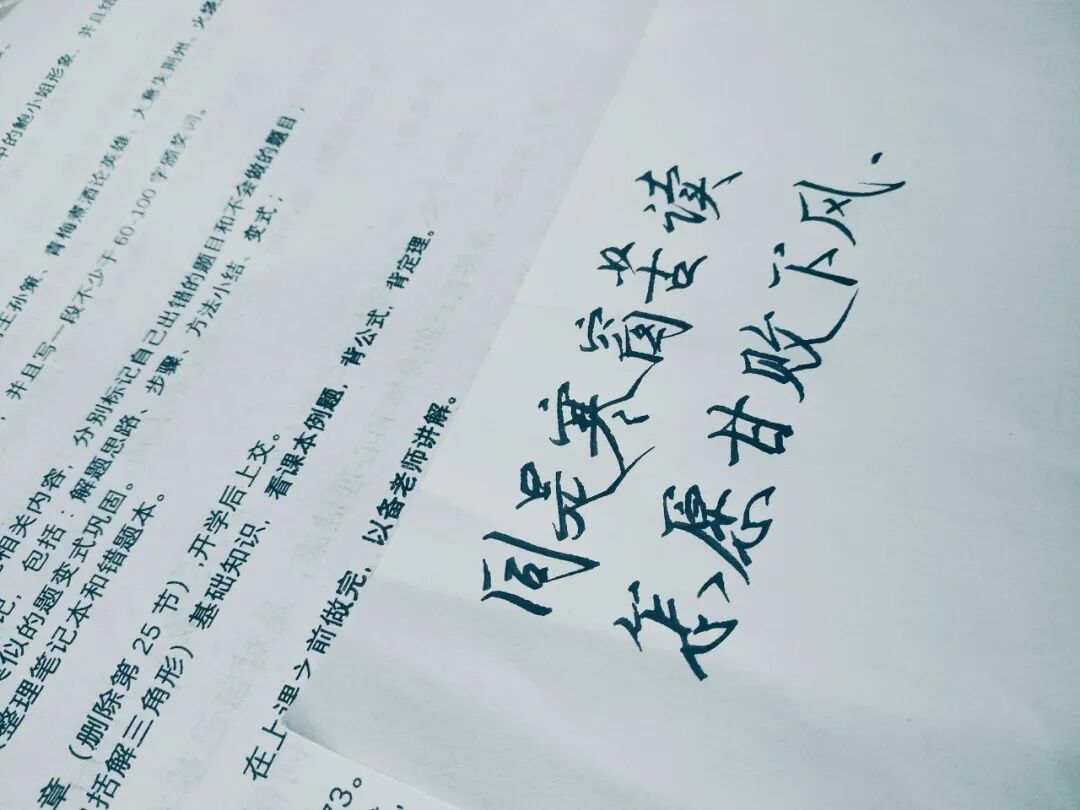 中的鲍小姐形象，并且结
王孙策、青梅煮酒论英雄、大意失荆州、火烧
，并且写一段不少于 60-100 字颁奖词。
相关内容，分别标记自己出错的题目和不会做的题目；
记，包括：解题思路、步骤、方法小结、变式；
类似的题变式巩固。
整理笔记本和错题本。
章（删除第 25 节）,开学后上交。
包括解三角形）基础知识，看课本例题，背公式，背定理。
在上课之前做完，以备老师讲解。
73。
同是寒窗苦读
怎愿甘败下风.